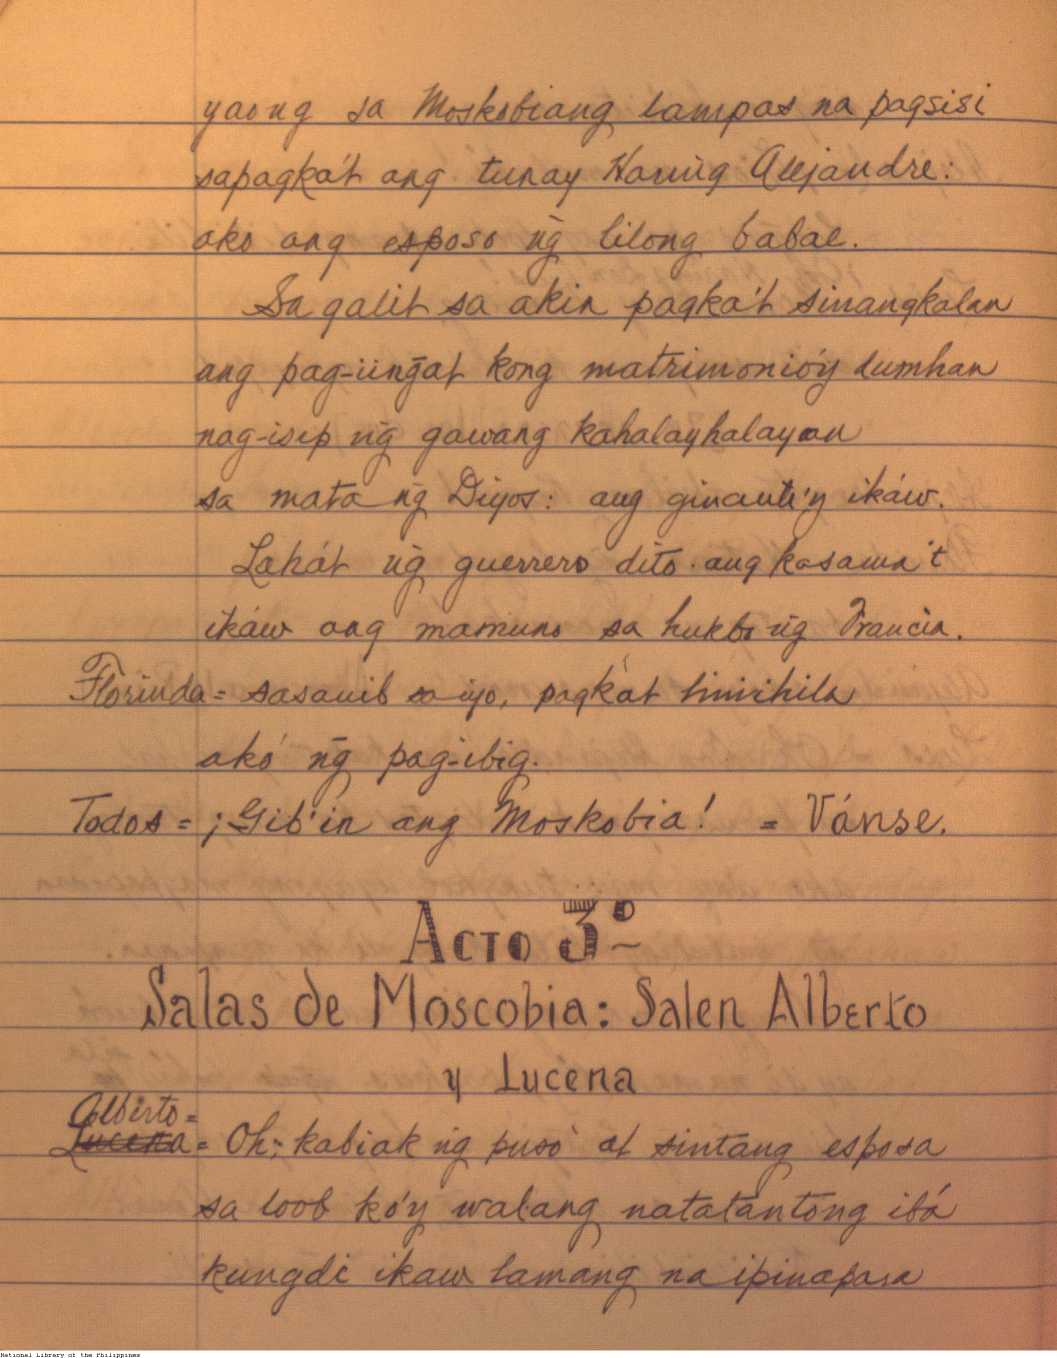 yaong sa Moskobiang lampas na pagsisi
sapagka't ang tunay Haring Alejandre:
ako ang esposo ng̃ lilong babae.
Sa galit sa akin pagka't sinangkalan
ang pag-iing̃at kong matrimonio'y dumhan
nag-isip ng̃ gawang kahalayhalayan
sa mata ng̃ Diyos: ang ginanti'y ikáw.
Lahát ng̃ guerrero dito ang kasama't
ikáw ang mamuno sa hukbo ng̃ Francia.
Florinda = sasanib sa iyo, pagka't hinihila
akó ng̃ pag-ibig.
Todos = ¡Gib'in ang Moskobia! = Vánse.
Acto 3º
Salas de Moscobia: Salen Alberto
y Lucena
Alberto =
Lucena = Oh; kabiak ng̃ puso at sintang esposa
sa loob ko'y walang natatantong ibá
kungdi ikaw lamang na ipinapasa
National Library of the Philippines